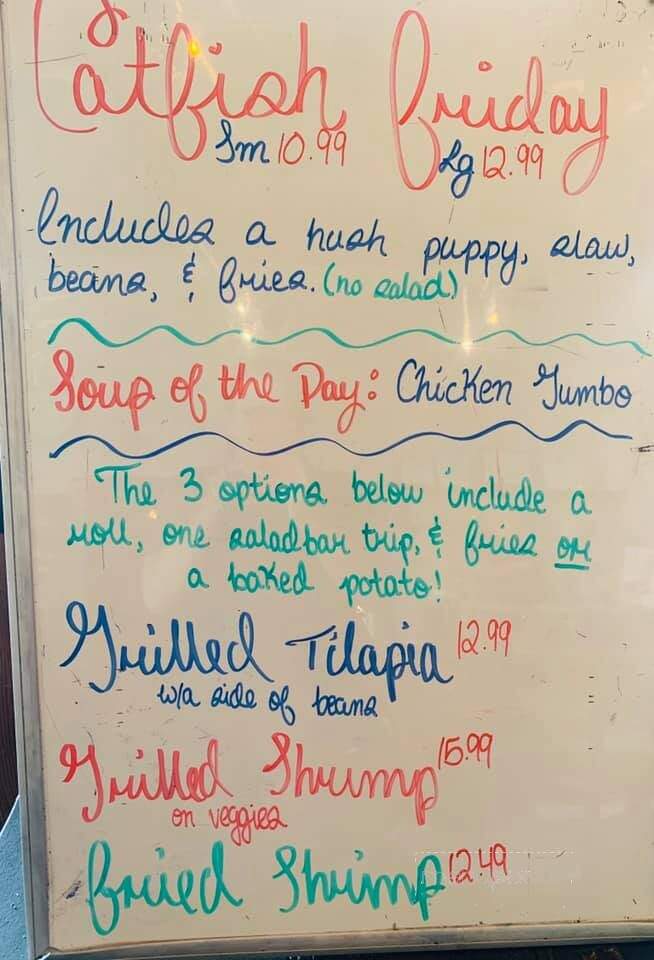 Catfish Friday
Sm 10.99 Lg 12.99
Includes a hush puppy, slaw,
beans, & fries. (no salad)
Soup of the Day: Chicken Gumbo
The 3 options below include a
roll, one salad bar trip, & fries or
a baked potato!
Grilled Tilapia 12.99
w/a side of beans
Grilled Shrimp 15.99
on veggies
Fried Shrimp 12.49